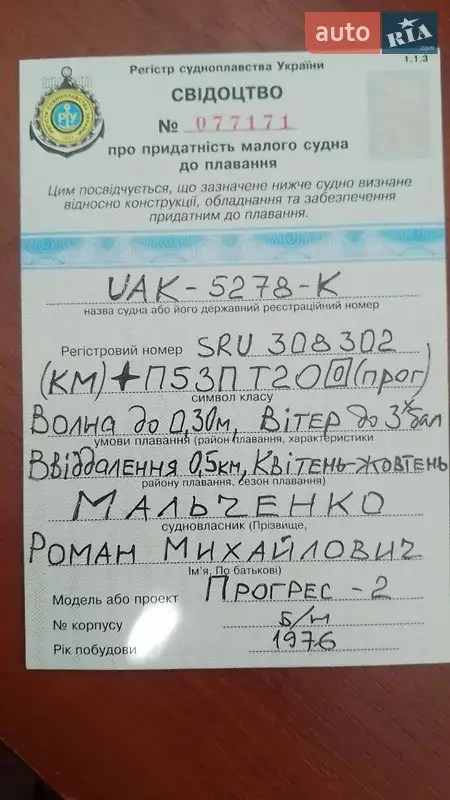 auto RIA.com
1.1.3
Регістр судноплавства України
СВІДОЦТВО
№ 077171
про придатність малого судна
до плавання
Цим посвідчується, що зазначене нижче судно визнане
відносно конструкції, обладнання та забезпечення
придатним до плавання.
UAK-5278-К
назва судна або його державний реєстраційний номер
Регістровий номер SRU 308302
(КМ)+П53ПТ20 0 (прог)
символ класу
Волна до 0,30м, Вітер до 3х бал
умови плавання (район плавання, характеристики
Ввіддалення 0,5км, Квітень-Жовтень
району плавання, сезон плавання)
МАЛЬЧЕНКО
судновласник (Прізвище,
РОМАН МИХАЙЛОВИЧ
Ім'я, По батькові)
Модель або проект ПРОГРЕС-2
№ корпусу б/н
Рік побудови 1976